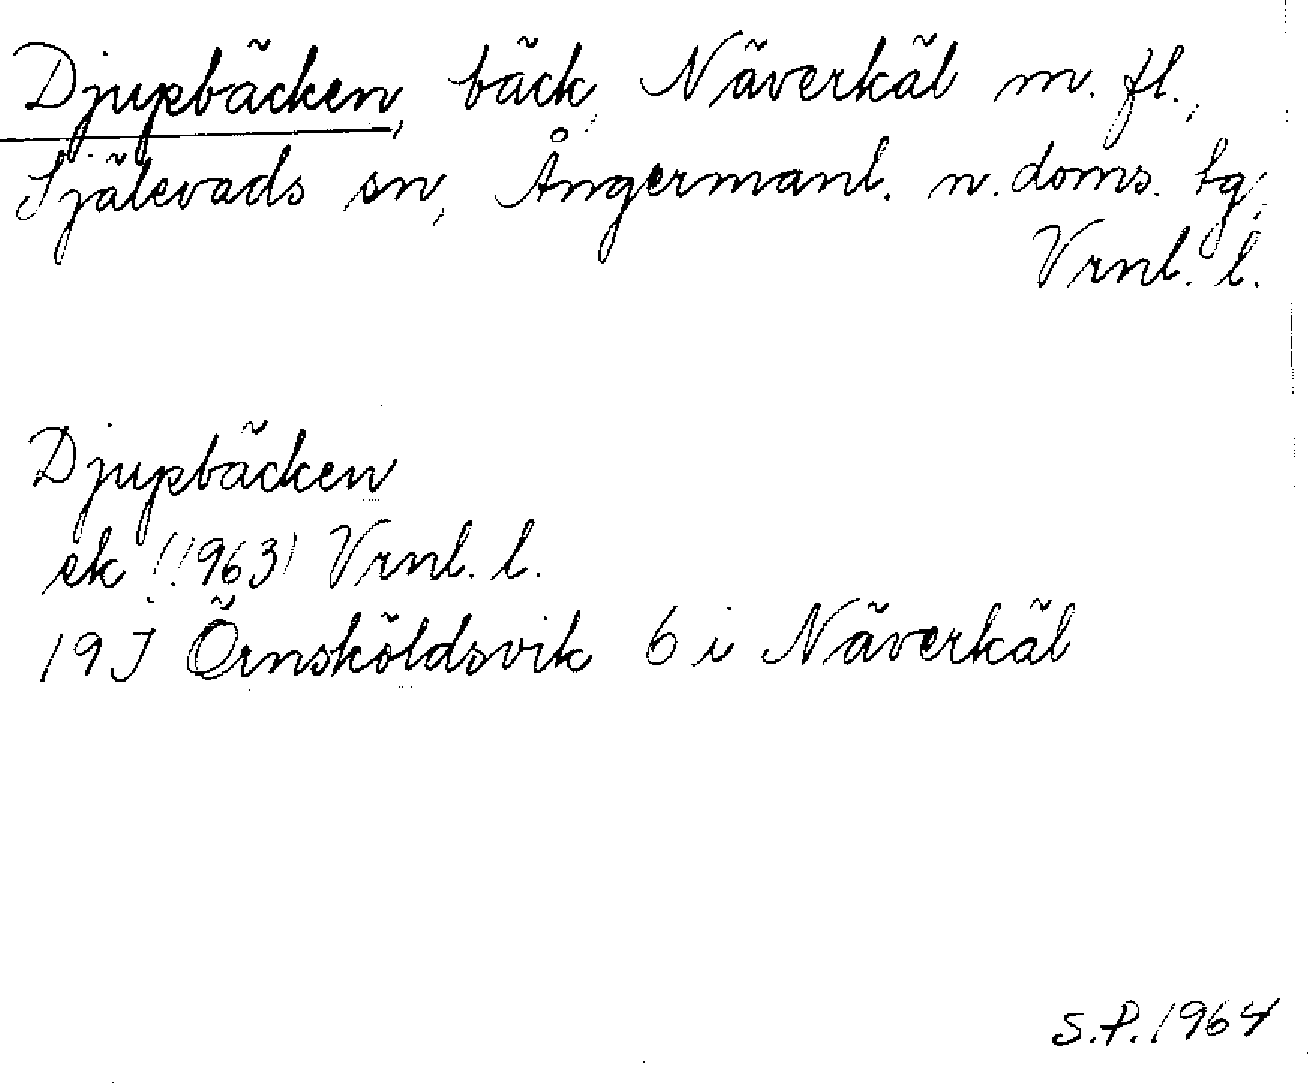 Djupbäcken, bäck, Näverkäl m. fl.,
Själevads sn, Ångermanl. n. doms. tg,
Vrnl. l.
Djupbäcken
ek (1963) Vrnl. l.
19J Örnsköldsvik 6 i Näverkäl
S.P. 1964